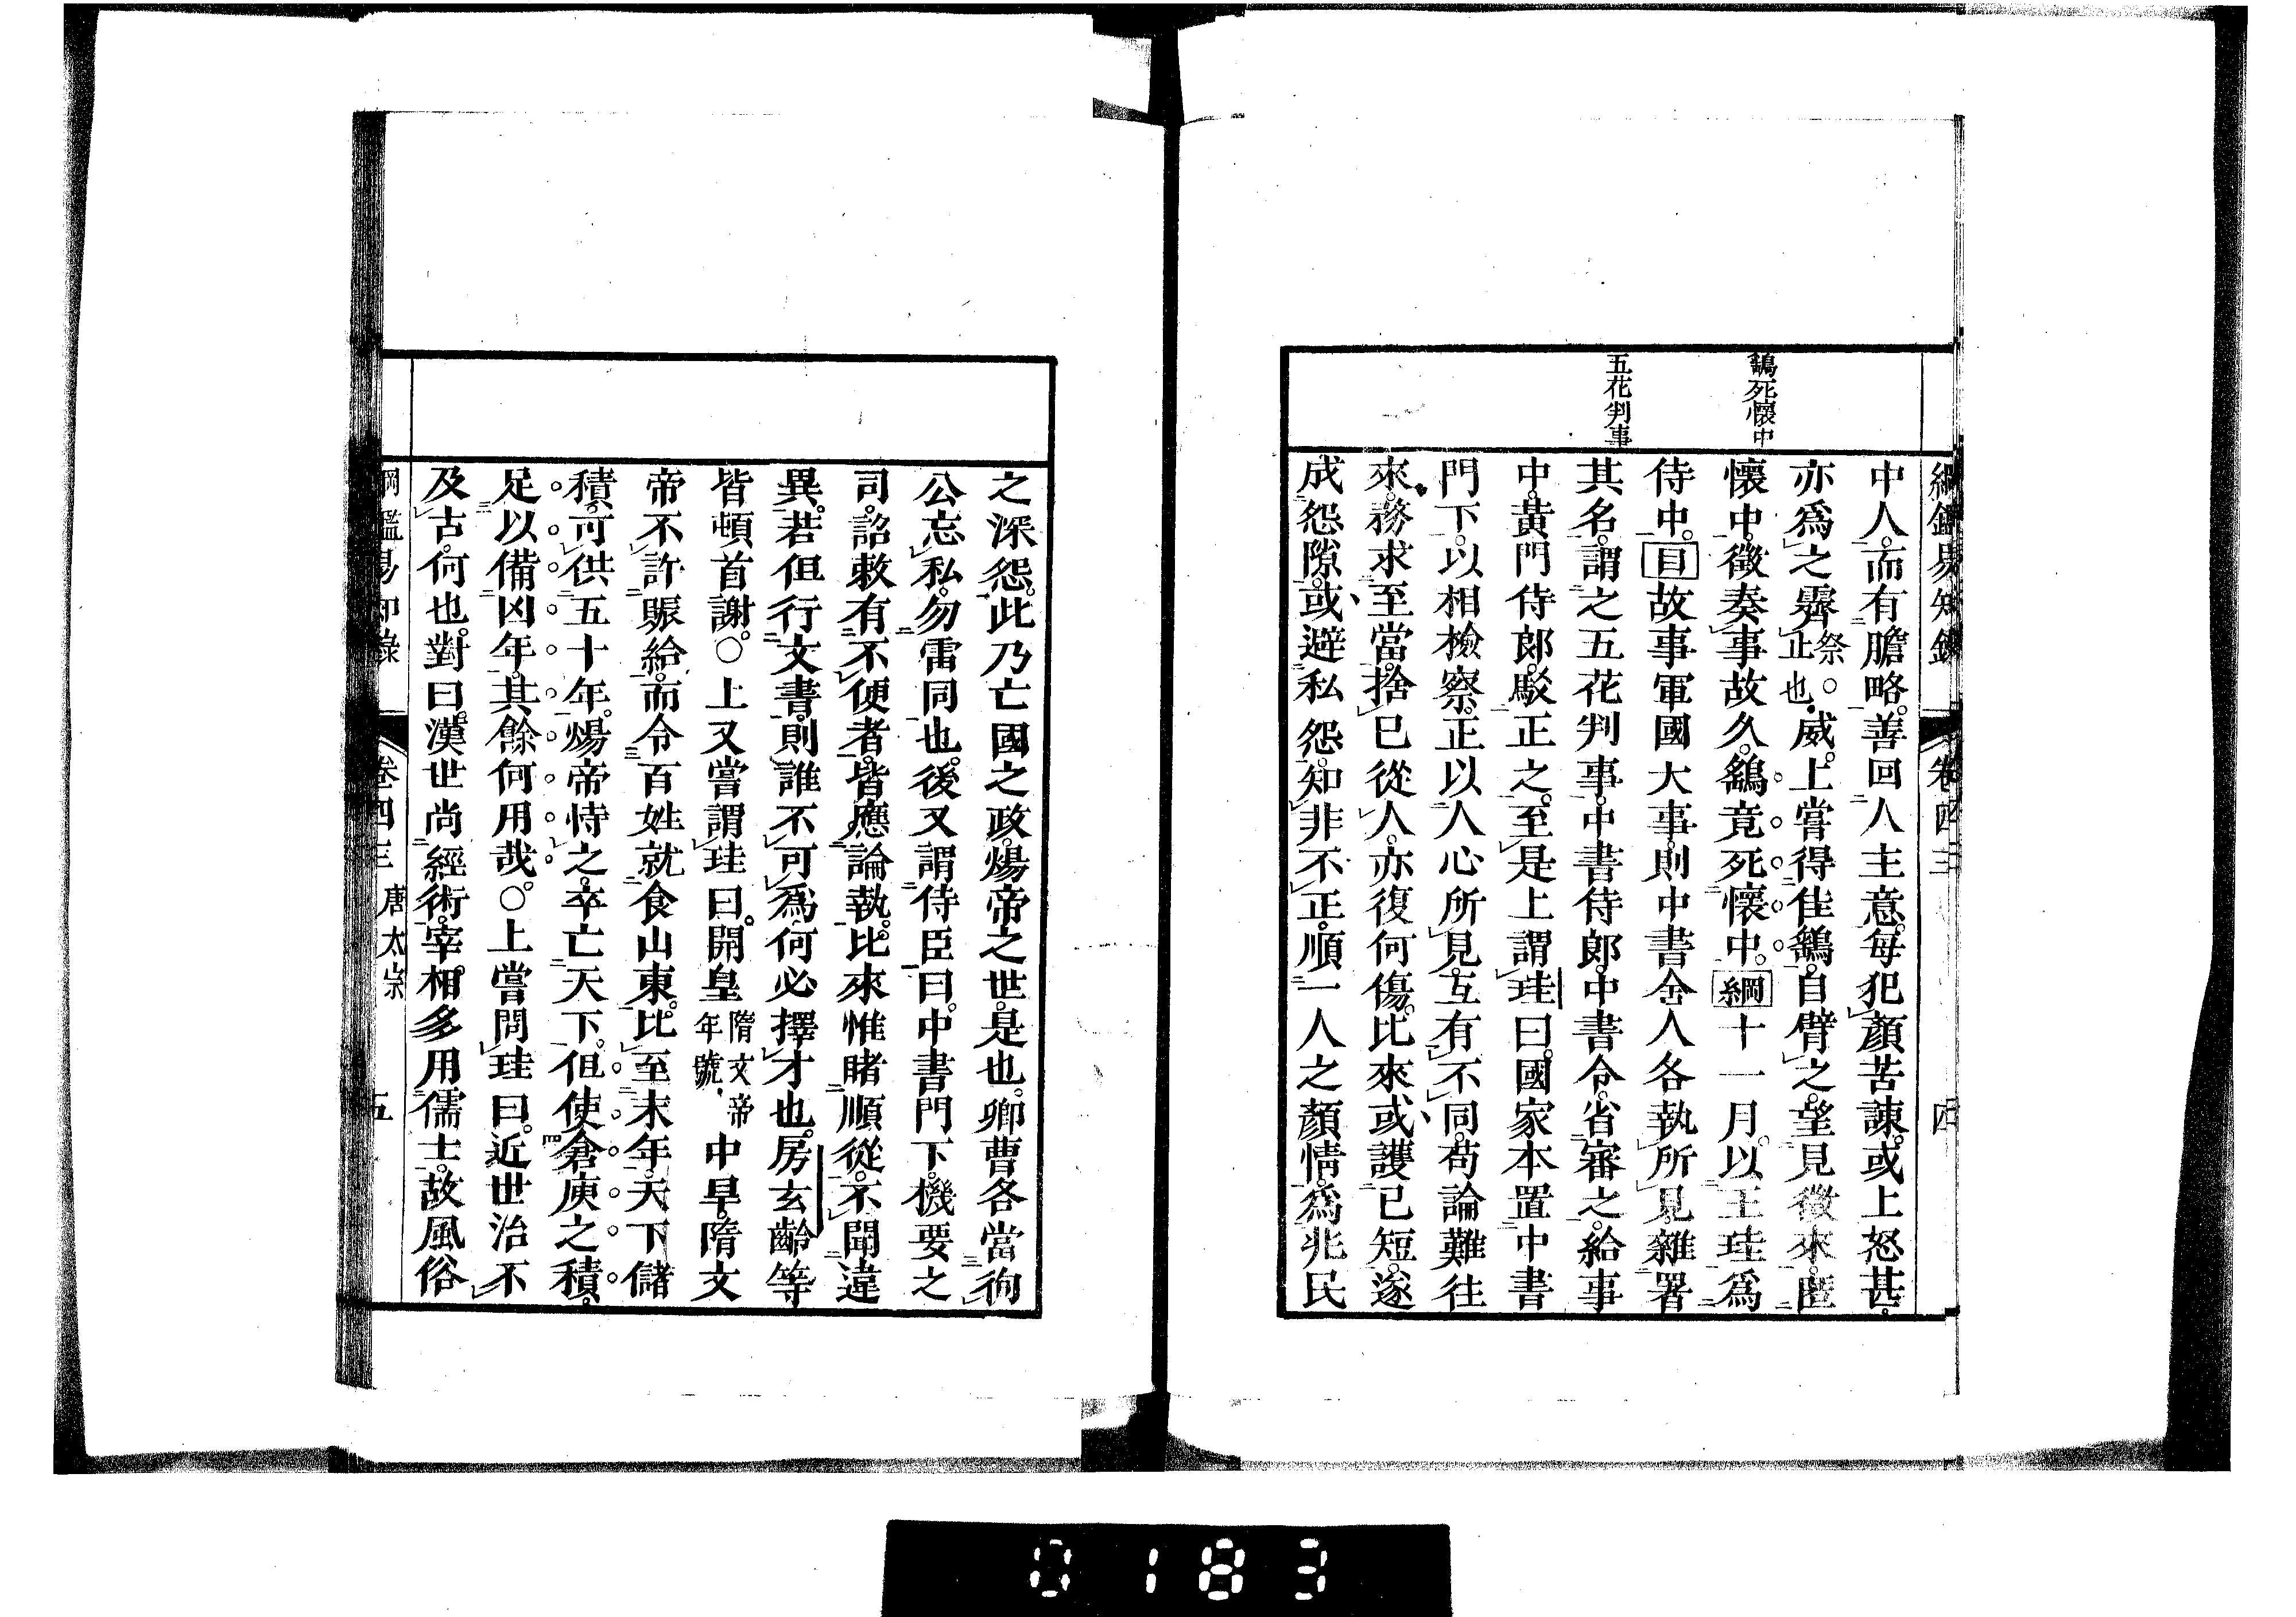 綱鑑易知錄 卷四三 四
鷂死懷中
五花判事
中人。而有膽略。善回人主意。每犯顏苦諫。或上怒甚。
亦爲之霽祭。止也。威。上嘗得佳鷂。自臂之。望見徵來。匿
懷中。徵奏事故久。鷂竟死懷中。綱十一月。以王珪爲
侍中。目故事軍國大事。則中書舍人各執所見。雜署
其名。謂之五花判事。中書侍郎。中書令。省審之。給事
中。黃門侍郎。駁正之。至是上謂珪曰。國家本置中書
門下。以相檢察。正以人心所見。互有不同。苟論難往
來。務求至當。捨已從人。亦復何傷。比來或護已短。遂
成怨隙。或避私怨。知非不正。順一人之顏情。爲兆民
之深怨。此乃亡國之政。煬帝之世。是也。卿曹各當徇
公忘私。勿雷同也。後又謂侍臣曰。中書門下。機要之
司。詔敕有不便者。皆應論執。比來惟睹順從。不聞違
異。若但行文書。則誰不可爲。何必擇才也。房玄齡等
皆頓首謝。○上又嘗謂珪曰。開皇隋文帝年號。中旱。隋文
帝不許賑給。而令百姓就食山東。比至末年。天下儲
積。可供五十年。煬帝恃之。卒亡天下。但使倉庾之積。
足以備凶年。其餘何用哉。○上嘗問珪曰。近世治不
及古。何也。對曰。漢世尚經術。宰相多用儒士。故風俗
綱鑑易知錄 卷四三 唐太宗 五
0183